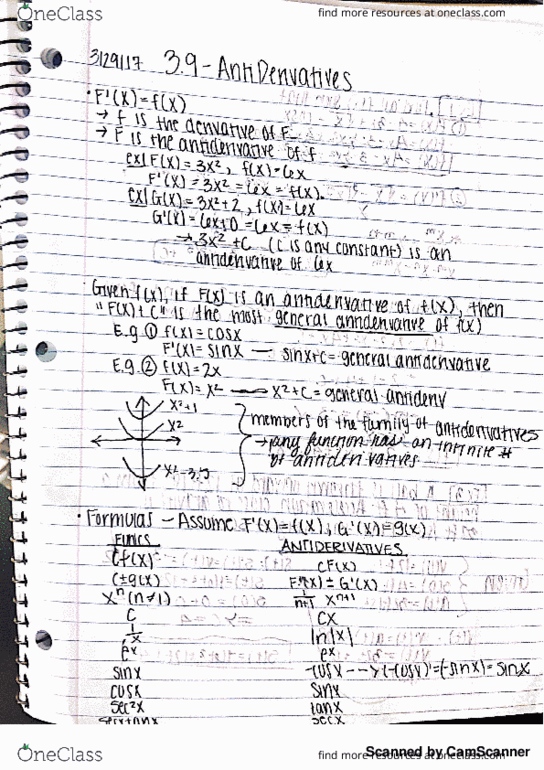 OneClass
find more resources at oneclass.com
3/29/17 3.9 - AntiDerivatives
• F'(x) = f(x)
→ f is the derivative of F
→ F is the antiderivative of f
ex| F(x) = 3x², f(x) = 6x
F'(x) = 3x² = 6x = f(x).
ex| G(x) = 3x²+2, f(x) = 6x
G'(x) = 6x+0 = 6x = f(x)
→ 3x² + C (C is any constant) is an
antiderivative of 6x
Given f(x), if F(x) is an antiderivative of f(x), then
"F(x) + C" is the most general antiderivative of f(x)
E.g. ① f(x) = cosx
F'(x) = sinx — sinx+c = general antiderivative
E.g. ② f(x) = 2x
F(x) = x² — x²+C = general antideriv
x²+1
x²
members of the family of antiderivatives
→ any function has an infinite #
of antiderivatives
• Formulas – Assume F'(x) = f(x), G'(x) = g(x)
Funcs ANTIDERIVATIVES
Cf(x) CF(x)
(±g(x) F'(x) ± G'(x)
xⁿ (n≠1) 1/n+1 xⁿ⁺¹
C Cx
1/x ln|x|
eˣ eˣ
sinx -cosx --> (-cosx)' = -(-sinx) = sinx
cosx sinx
sec²x tanx
secxtanx secx
OneClass
find more resources at oneclass.com
Scanned by CamScanner